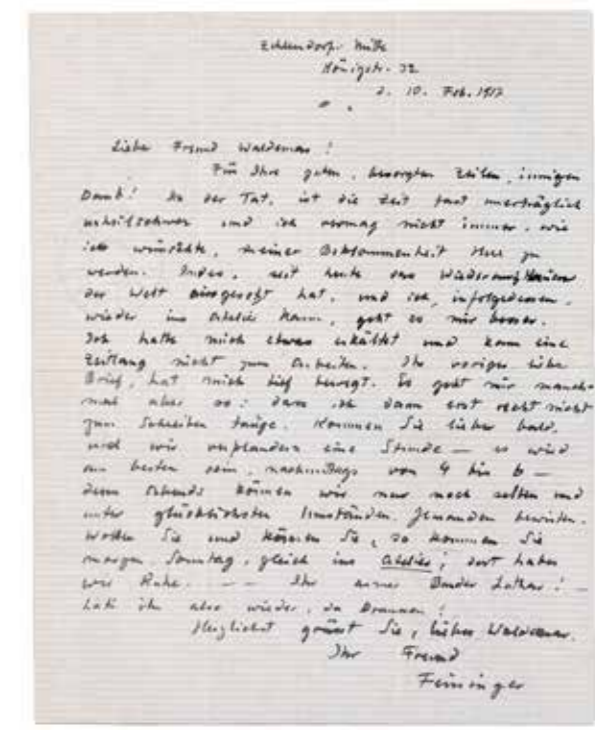 Zehlendorf-Mitte
Königstr. 32
d. 10. Feb. 1917
Lieber Freund Waldemar!
Für Ihre guten, besorgten Zeilen, innigen
Dank! In der Tat, ist die Zeit fast unerträglich
unheilschwer und ich vermag nicht immer, wie
ich wünschte, meiner Beklommenheit Herr zu
werden. Indes, seit heute das Wiederauftauen
der Welt eingesetzt hat, und ich, infolgedessen,
wieder ins Atelier kann, geht es mir besser.
Ich hatte mich etwas erkältet und kam eine
Zeitlang nicht zum Arbeiten. Ihr voriger lieber
Brief, hat mich tief bewegt. Es geht mir manch-
mal aber so: dass ich dann erst recht nicht
zum Schreiben tauge. Kommen Sie lieber bald,
und wir verplaudern eine Stunde — es wird
am besten sein, nachmittags von 4 bis 6 —
denn Abends können wir nur noch selten und
unter glücklichsten Umständen Jemanden bewirten.
Wollen Sie und können Sie, so kommen Sie
morgen, Sonntag, gleich ins Atelier; dort haben
wir Ruhe. — — Ihr armer Bruder Lothar! —
ihn also wieder, da Draussen!
Herzlichst grüsst Sie, lieber Waldemar,
Ihr Freund
Feininger